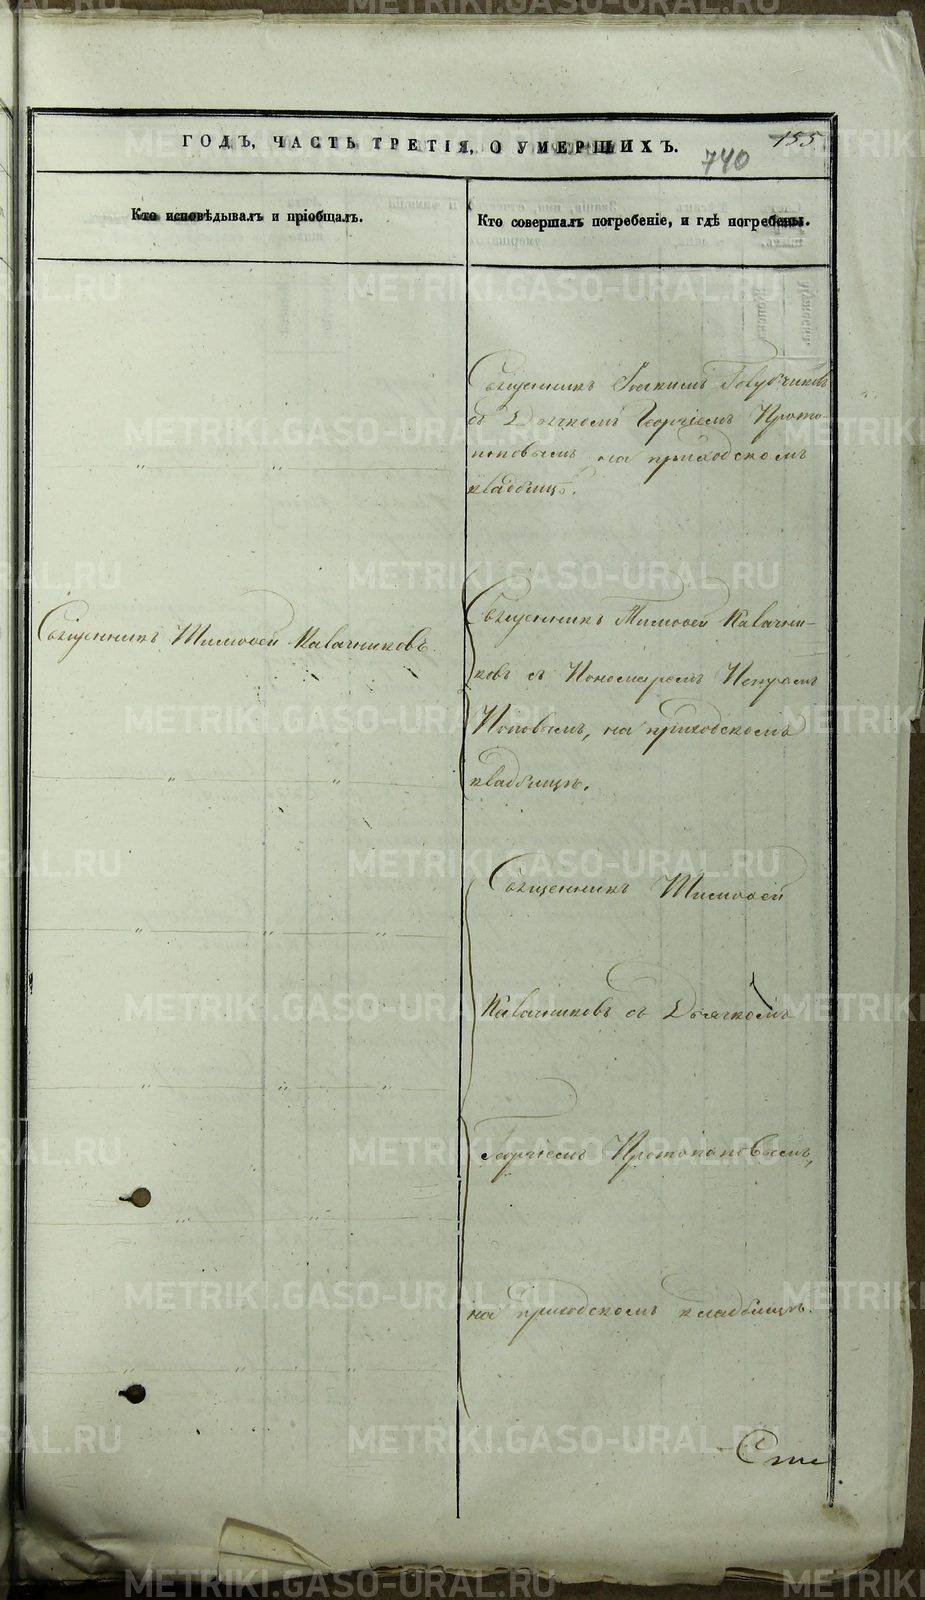 ГОДЪ, ЧАСТЬ ТРЕТІЯ, О УМЕРШИХЪ.
155
740
Кто исповѣдывалъ и пріобщалъ.
Кто совершалъ погребеніе, и гдѣ погребены.
Священникъ Іоакимъ Голубчиковъ
съ Дьячкомъ Георгіемъ Прото-
поповымъ на приходскомъ
кладбищѣ.
Священникъ Тимофей Калачниковъ
Священникъ Тимофей Калачни-
ковъ съ Пономаремъ Петромъ
Поповымъ, на приходскомъ
кладбищѣ.
Священникъ Тимофей
Калачниковъ съ Дьячкомъ
Георгіемъ Протопоповымъ,
на приходскомъ кладбищѣ.
METRIKI.GASO-URAL.RU